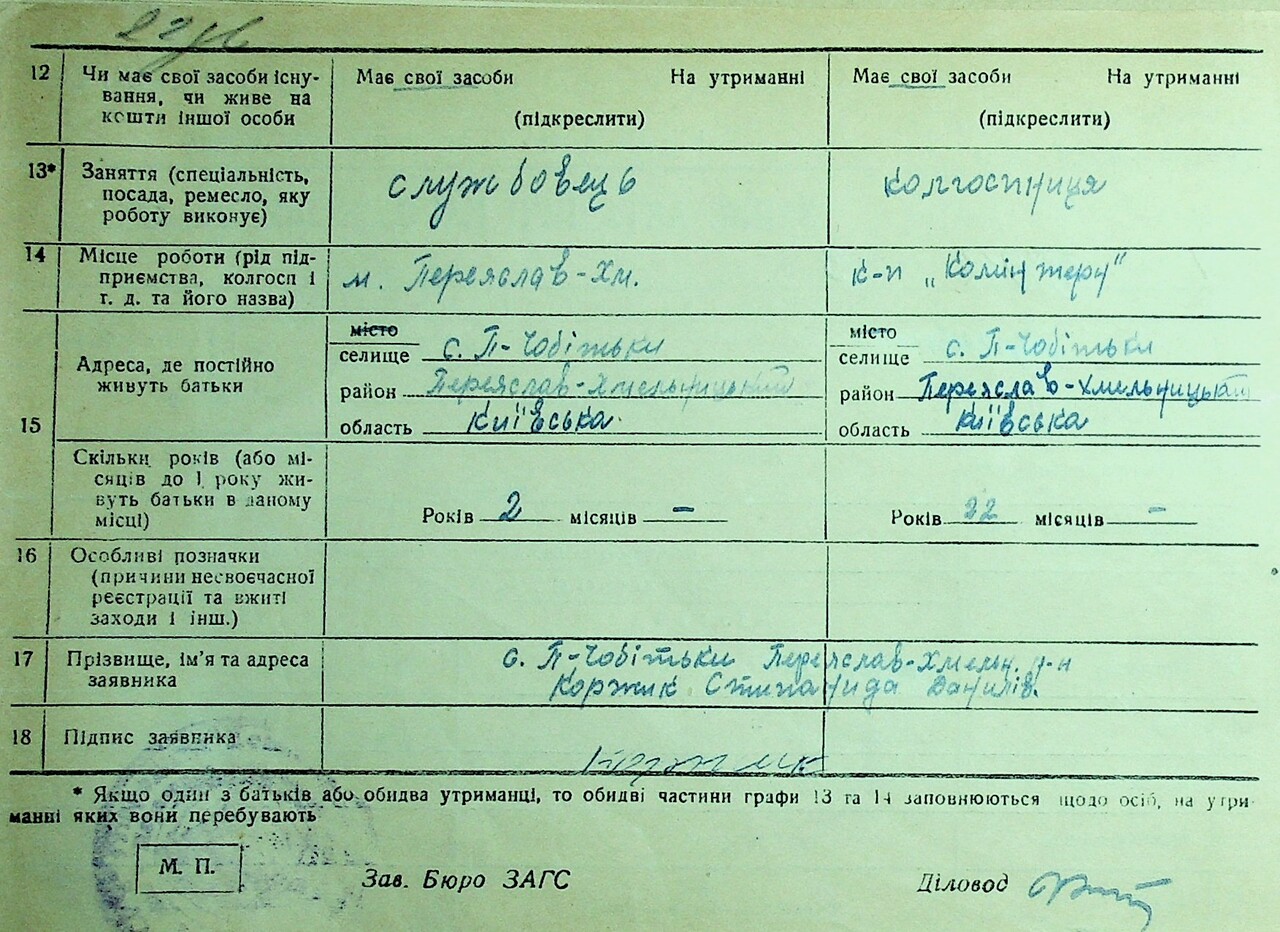 12 Чи має свої засоби існу- Має свої засоби На утриманні Має свої засоби На утриманні
вання, чи живе на
кошти іншої особи (підкреслити) (підкреслити)
13* Заняття (спеціальність, службовець колгоспниця
посада, ремесло, яку
роботу виконує)
14 Місце роботи (рід під- м. Переяслав-Хм. к-п „Комінтерн"
приємства, колгосп і
т. д. та його назва)
15 Адреса, де постійно
живуть батьки
місто місто
селище с. П-Чобітьки селище с. П-Чобітьки
район Переяслав-Хмельницький район Переяслав-Хмельницький
область Київська область Київська
Скільки років (або мі-
сяців до 1 року жи-
вуть батьки в даному
місці) Років 2 місяців – Років 22 місяців –
16 Особливі позначки
(причини несвоєчасної
реєстрації та вжиті
заходи і інш.)
17 Прізвище, ім'я та адреса с. П-Чобітьки Переяслав-Хмельн. р-н
заявника Коржик Степанида Данилів.
18 Підпис заявника Коржик
* Якщо один з батьків або обидва утриманці, то обидві частини графи 13 та 14 заповнюються щодо осіб, на утри-
манні яких вони перебувають
М. П. Зав. Бюро ЗАГС Діловод